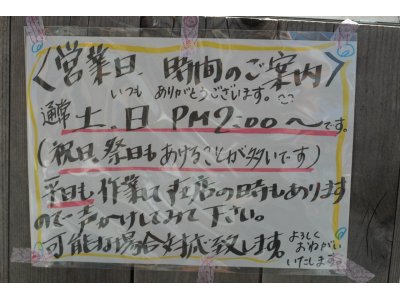 〈営業日 時間のご案内〉
いつも ありがとうございます。
通常 土.日 PM2:00〜です。
(祝日祭日もあけることが多いです)
平日も作業で在店の時もあります
ので一声かけてみて下さい。
可能な場合対応致します。
よろしく
おねがい
いたします。